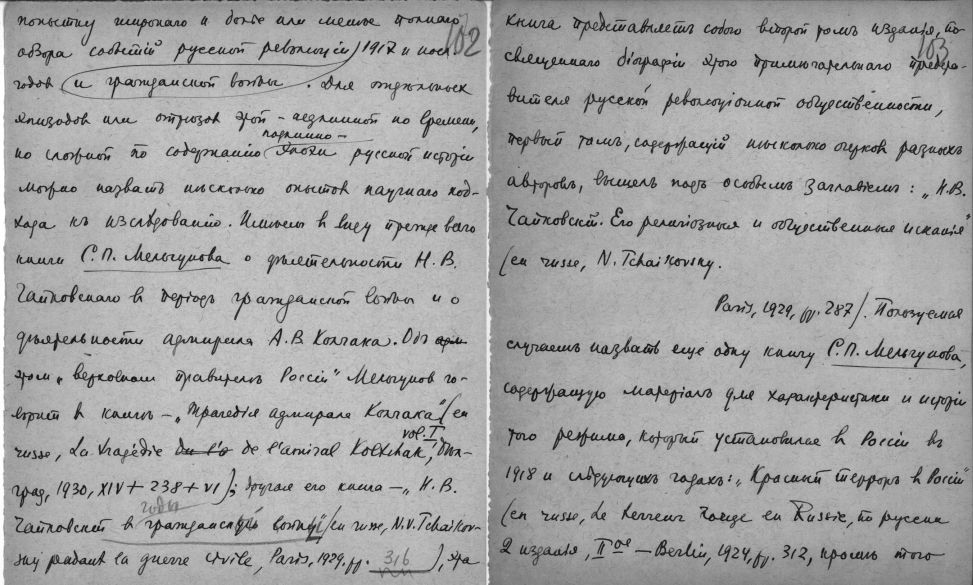 102
попытку широкаго и болѣе или менѣе полнаго
обзора событій русской революціи 1917 и посл.
годов и гражданской войны. Для отдѣльных
эпизодов или отрѣзов этой – недлинной по времени,
подлинно –
но сложной по содержанію эпохи русской исторіи
можно назвать нѣсколько опытов научнаго под-
хода къ изслѣдованію. Имѣем в виду прежде всего
книги С.П. Мельгунова о дѣятельности Н.В.
Чайковскаго в періодъ гражданской войны и о
дѣятельности адмирала А.В. Колчака. Объ
этом „верховном правителѣ Россіи" Мельгунов го-
ворит в книгѣ – „Трагедія адмирала Колчака" (en
russe, La tragédie de l'amiral Koltchak, vol. I,
град, 1930, XIV + 238 + VI); другая его книга – „Н.В.
годы
Чайковскій в гражданской войны" (en russe, N.V. Tchaikov-
sky pendant la guerre civile, Paris, 1929, pp. 316), эта
103
книга представляетъ собою второй томъ изданія, по-
священнаго біографіи этого примѣчательнаго предста-
вителя русской революціонной общественности,
первый томъ, содержащій нѣсколько очерков разныхъ
авторовъ, вышелъ подъ особымъ заглавіемъ: „Н.В.
Чайковскій. Его религіозныя и общественныя исканія"
(en russe, N. Tchaikovsky.
Paris, 1929, pp. 287). Пользуемся
случаемъ назвать еще одну книгу С.П. Мельгунова,
содержащую матеріалъ для характеристики и исторіи
того режима, который установился в Россіи въ
1918 и слѣдующихъ годахъ: „Красный терроръ в Россіи"
(en russe, Le terreur rouge en Russie, по русски
2 изданія, II ое – Berlin, 1924, pp. 312, кромѣ того